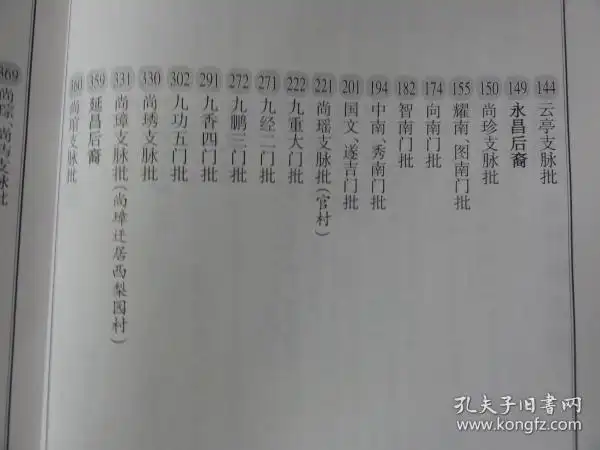 144 云亭支脉批
149 永昌后裔
150 尚珍支脉批
155 耀南、图南门批
174 向南门批
182 智南门批
194 中南、秀南门批
201 国文、遂吉门批
221 尚瑶支脉批(官村)
222 九重大门批
271 九经二门批
272 九鹏三门批
291 九香四门批
302 九功五门批
330 尚琇支脉批
331 尚璋支脉批(尚璋迁居西梨园村)
359 延昌后裔
360 尚瑸支脉批
369 尚琮、尚
支脉批
孔夫子旧书网
www.kongfz.com